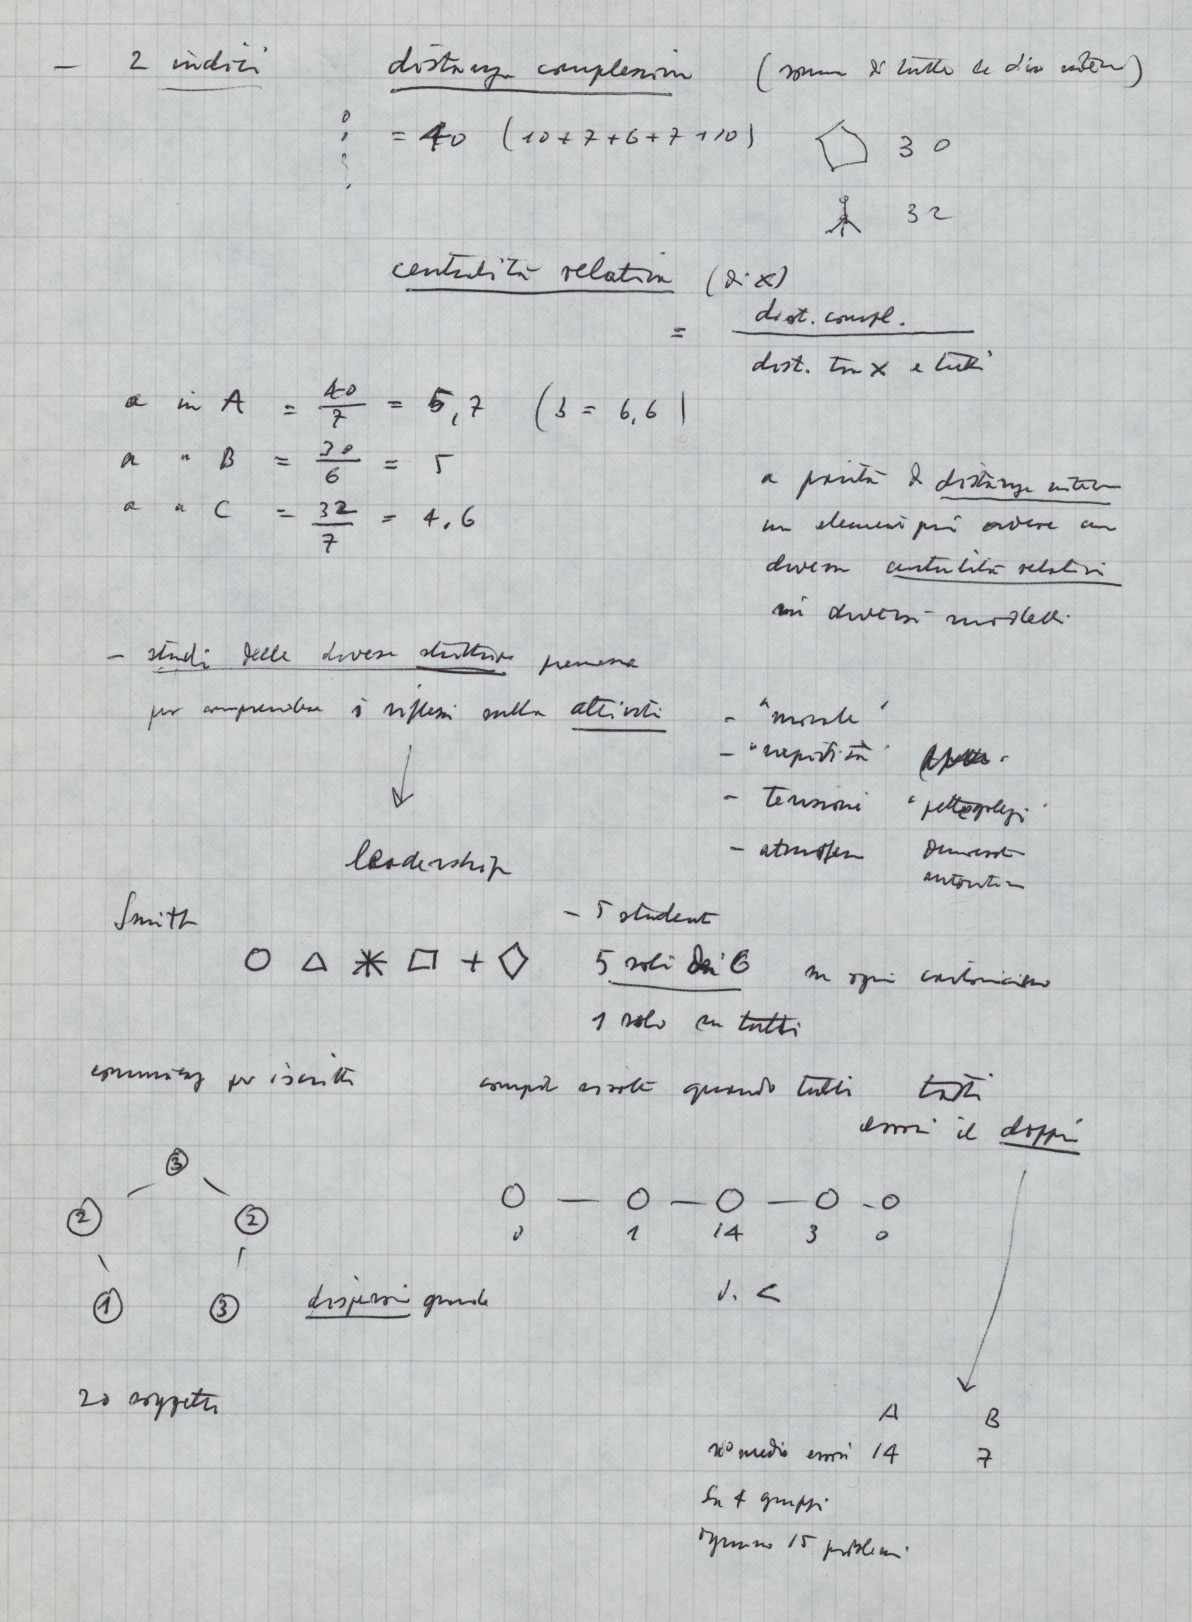 – 2 indici distanza complessiva (somma di tutte le dis interne)
= 40 (10+7+6+7+10) 30
32
centralità relativa (di x)
= dist. compl.
dist. tra x e tutti
a in A = 40/7 = 5,7 (3 = 6,6)
a " B = 30/6 = 5
a " C = 32/7 = 4,6
a parità di distanza interna
un elemento può avere una
diversa centralità relativa
in diversi modelli
– studi delle diverse strutture premessa
per comprendere i riflessi sulla attività
– "morale"
– "rapidità"
– tensioni "pettegolezzi"
– atmosfera democrat
autorita
leadership
Smith
– 5 studenti
5 soli dei 6 su ogni cartoncino
1 solo su tutti
per iscritto
quando tutti tutti
errori il doppio
3
2 2
1 3
0 1 14 3 0
dispersione grande
d. <
20 soggetti
A B
n° medio errori 14 7
su 4 gruppi
ognuno 15 problemi